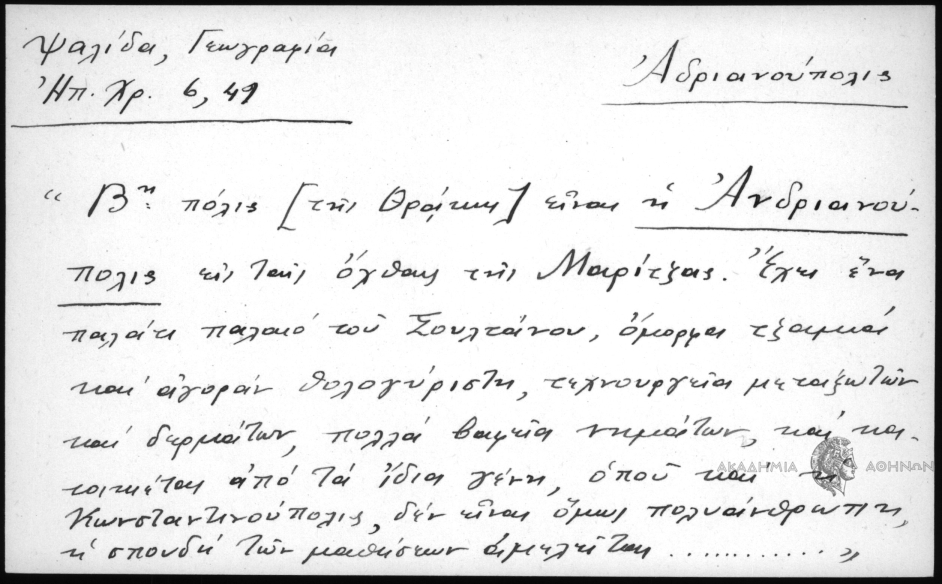 Ψαλίδα, Γεωγραφία
Ἠπ. Χρ. 6, 49
Ἀδριανούπολις
“ Βα πόλις [τῆς Θράκης] εἶναι ἡ Ἀνδριανού-
πολις εἰς ταῖς ὄχθαις τῆς Μαρίτζας. Ἔχει ἕνα
παλάτι παλαιό τοῦ Σουλτάνου, ὄμορφα τζαμιά
καί ἀγοράν θολογύριστη, τεχνουργεῖα μεταξωτῶν
καί δερμάτων, πολλά βαφεῖα νημάτων, καί κα-
τοικιέται ἀπό τά ἴδια γένη, ὁποῦ καί ἡ
Κωνσταντινούπολις, δέν εἶναι ὅμως πολυάνθρωπη,
ἡ σπουδή τῶν μαθήσεων ἀμελεῖται ............ ”
ΑΚΑΔΗΜΙΑ ΑΘΗΝΩΝ